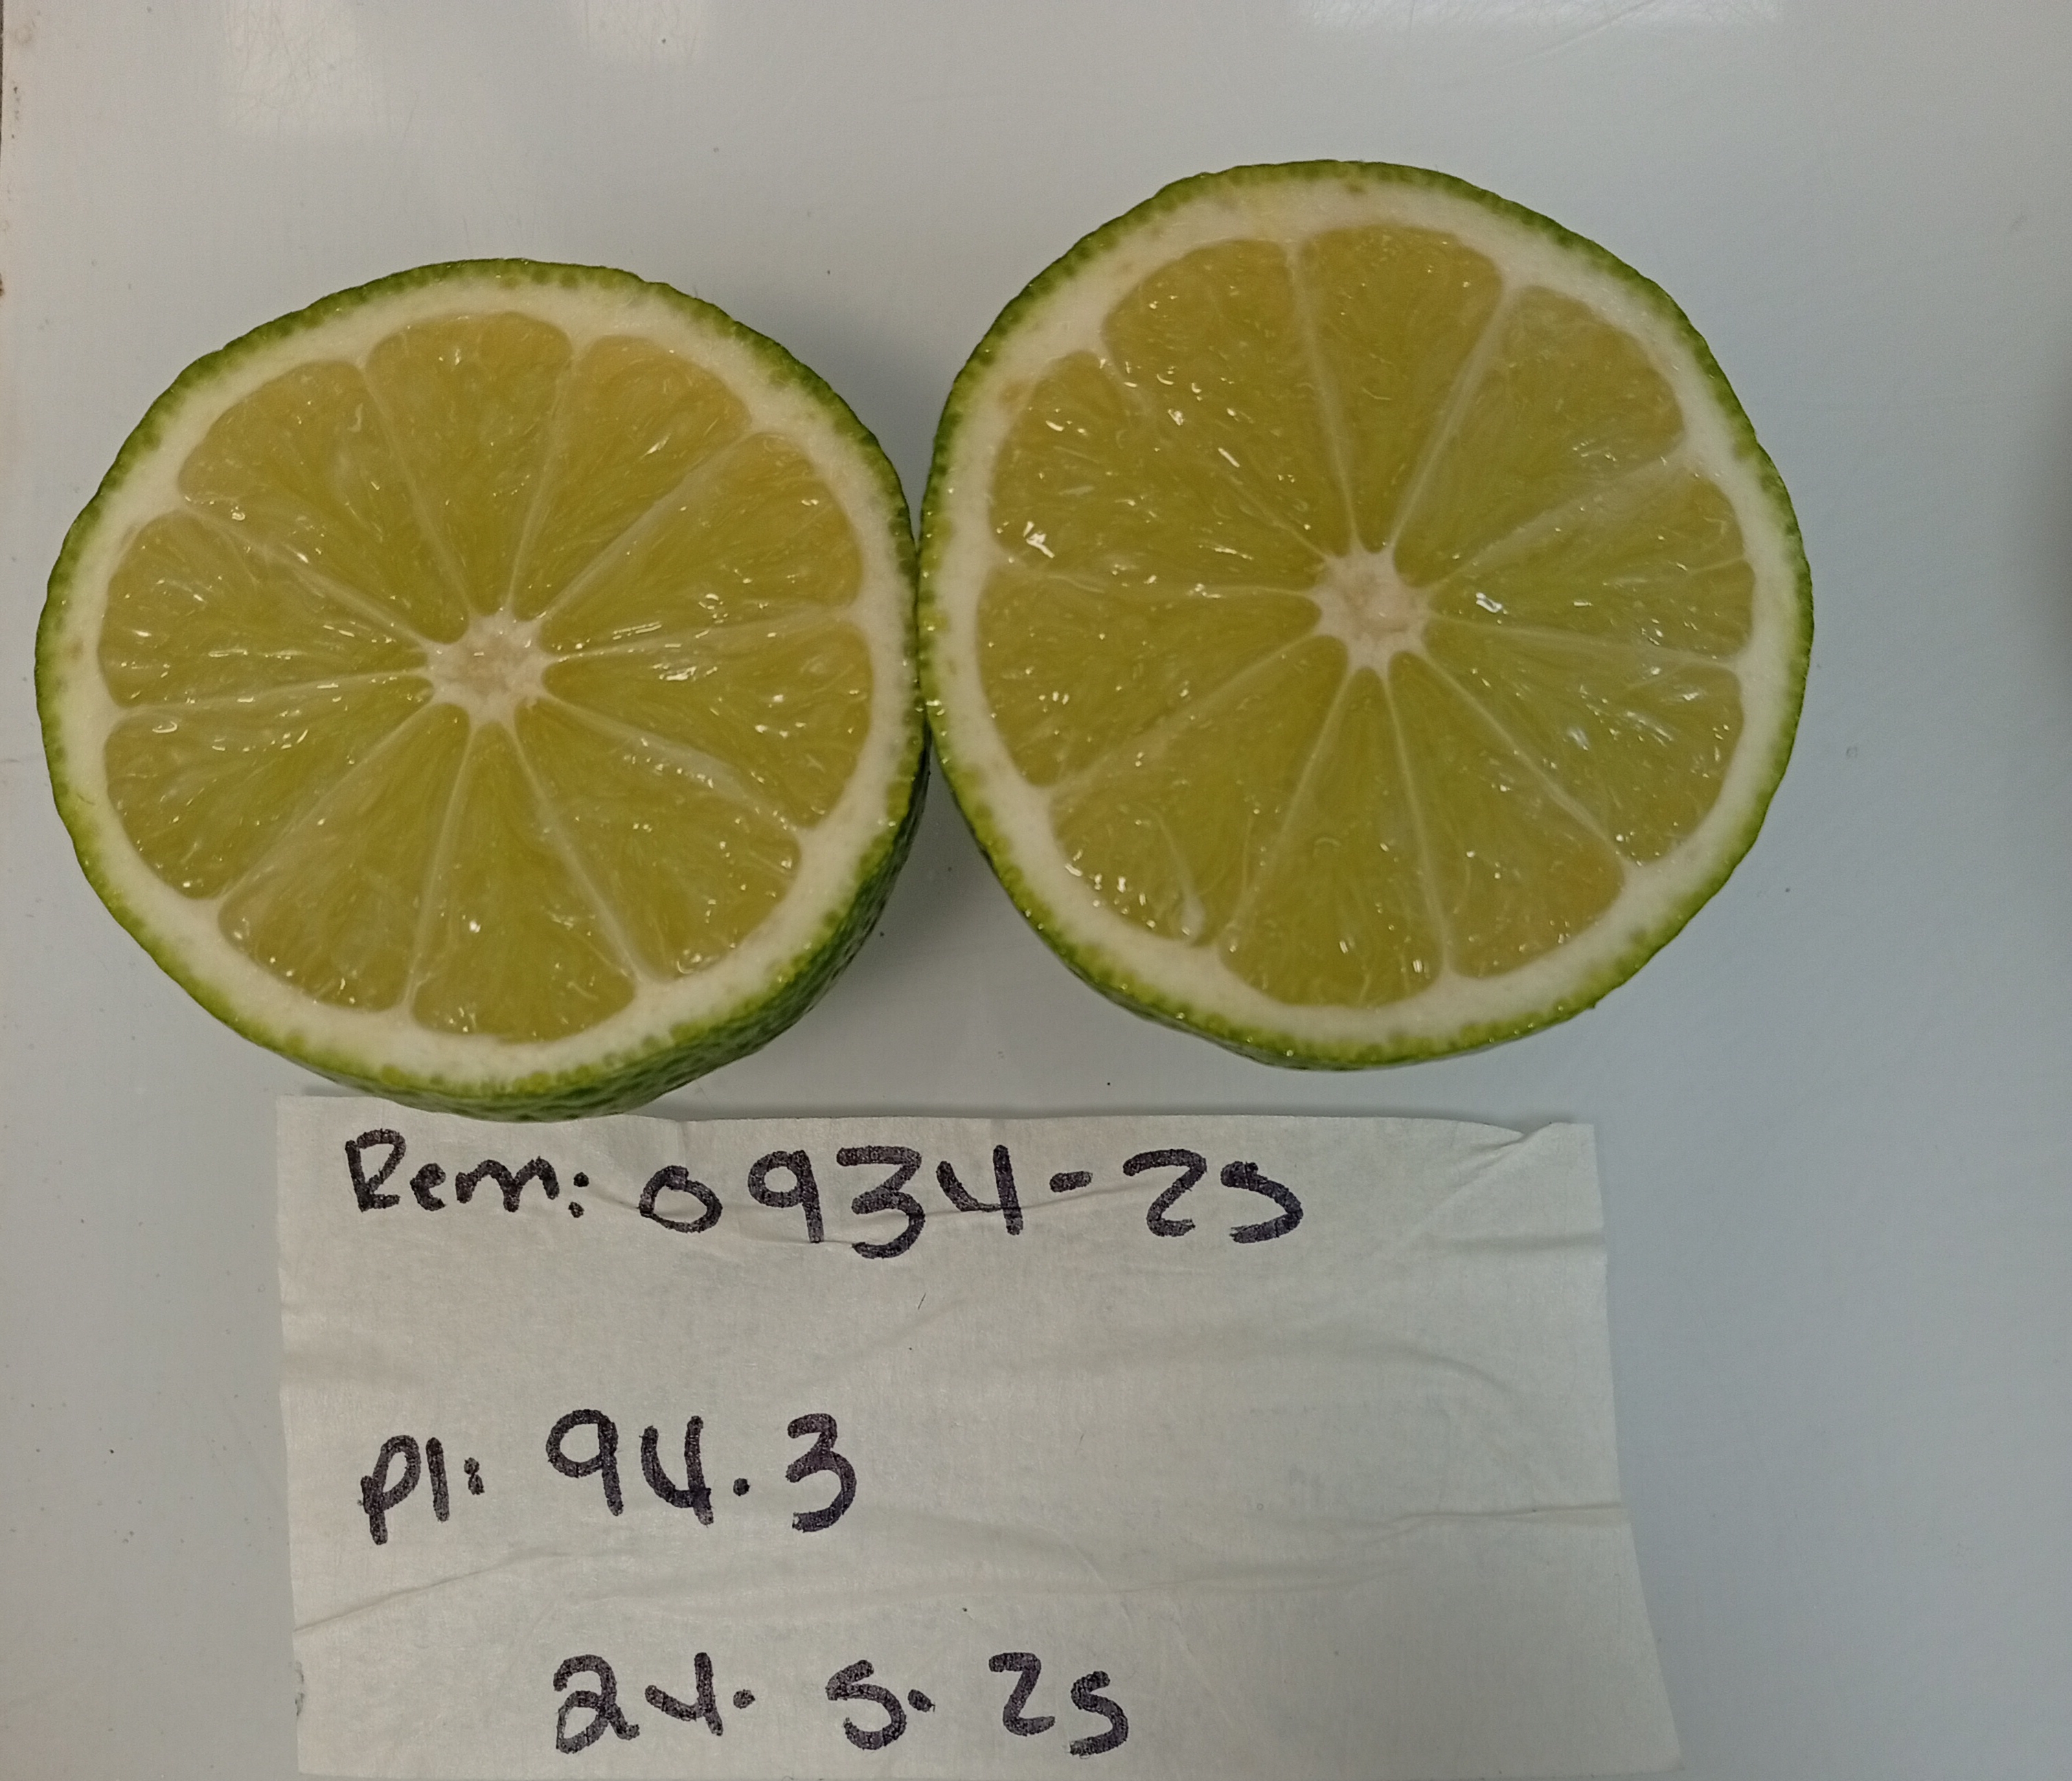 Rem: 0934-25
Pl: 94.3
24. 5. 25